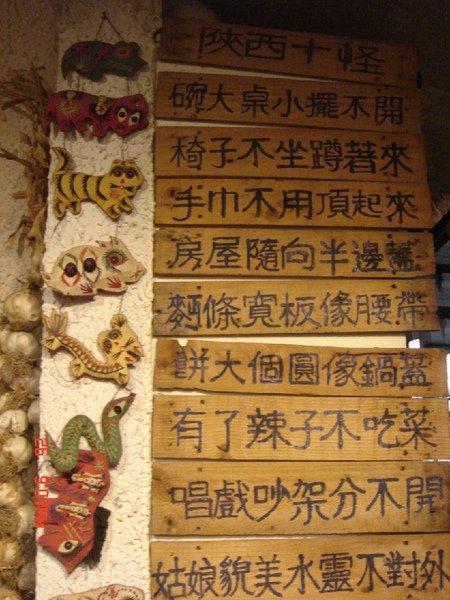 陝西十怪
碗大桌小擺不開
椅子不坐蹲著來
手巾不用頂起來
房屋隨向半邊蓋
麵條寬板像腰帶
餅大個圓像鍋蓋
有了辣子不吃菜
唱戲吵架分不開
姑娘貌美水靈不對外